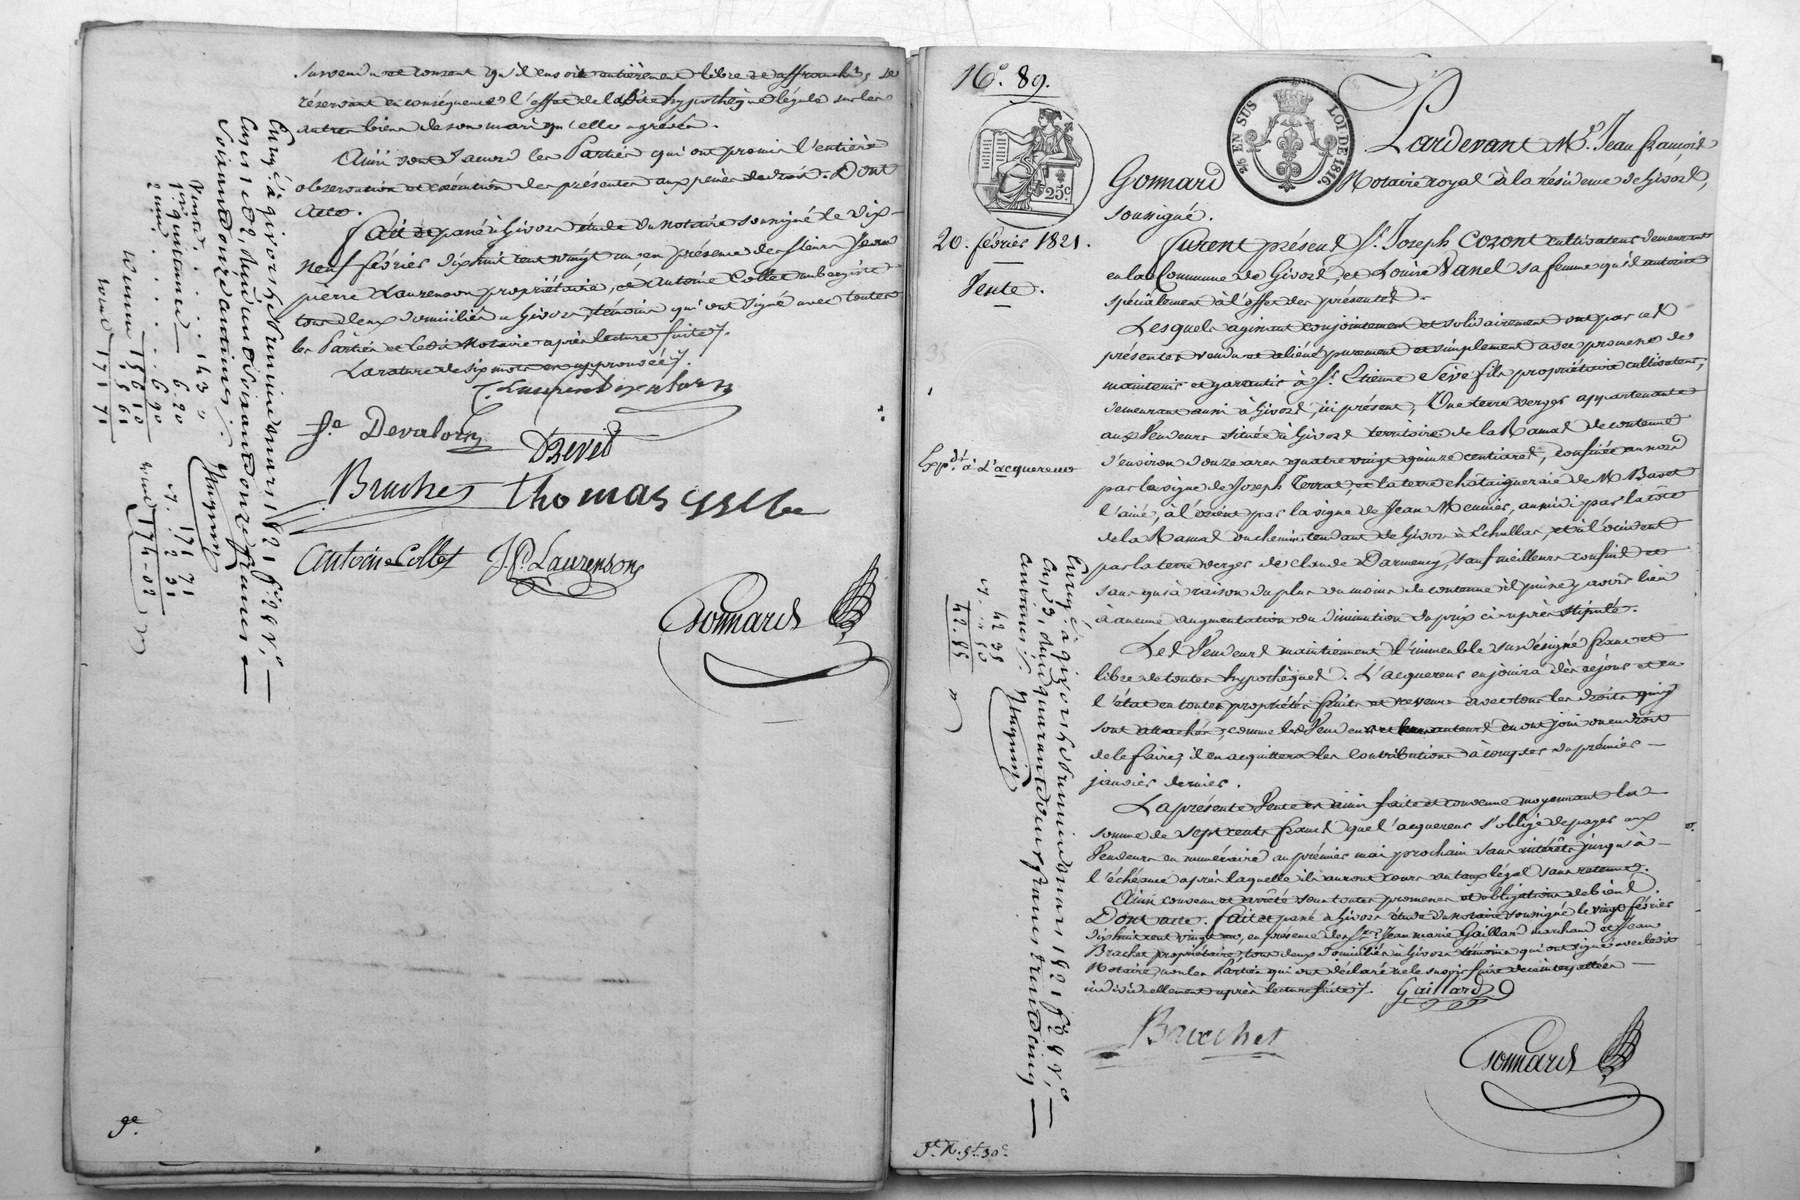 survendu et consent qu'il en soit entièrement libre et affranchi, se
réservant en conséquence l'effet de la dite hypothèque légale sur les
autres biens de son mari qu'elle a grévés.
Ainsi sont d'accord les Parties qui ont promis l'entière
observation et exécution des présentes aux peines de droit. Dont
Acte.
Fait et passé à Givors étude du notaire soussigné le dix-
neuf février dix huit cent vingt un en présence des sieurs Jean
pierre Laurenson propriétaire, et Antoine Collet
tous deux domiciliés à Givors, témoins qui ont signé avec toutes
les Parties et ledit Notaire après lecture faite.
La rature de six mots est approuvée.
fe Devaborn
Drevet
Brachet thomas
Antoine Collet J. P. Laurenson
Gonnard
Enregé à givors le premier mars 1821 fo
Cent soixante onze francs
Soixante onze centimes
Vente . . . 143 "
1 p. quittance 6.20
Dixme 15 61
total 171 71
171 71
2 31
total 174-02
9e.
No. 89.
25c.
2/6 EN SUS LOI DE 1816.
20. février 1821.
Vente.
Expdt. à l'acquereur
Pardevant Me. Jean françois
Gonnard Notaire royal à la résidence de Givors,
soussigné.
Furent présens Sr. Joseph Cozont cultivateur demeurant
en la Commune de Givors, et Louise Vanel sa femme qu'il autorise
spécialement à l'effet des présentes.
Lesquels agissant conjointement et solidairement ont par ces
présentes vendu et aliéné purement et simplement avec promesse de
maintenir et garantir à Sr. Etienne Sève fils propriétaire cultivateur,
demeurant aussi à Givors, ici présent, Une terre verger appartenante
aux Vendeurs située à Givors territoire de la Ramat de contenue
d'environ douze ares quatre vingt quinze centiares, confinée au nord
par la vigne de Joseph Terrat, et la terre chataigneraie de M. Bavet
l'ainé, à l'orient par la vigne de Jean Meunier, au midi par la côte
de la Ramat ou chemin tendant de Givors à Echallas, et à l'occident
par la terre verger de claude Darmancy, sauf meilleurs confins et
sans qu'à raison du plus ou moins de contenue il puisse y avoir lieu
à aucune augmentation ou diminution du prix ci après stipulé.
Les Vendeurs maintiennent l'immeuble sus désigné franc et
libre de toutes hypothèques. L'acquereur en jouira dès ce jour et en
l'état en toutes propriétés fruits et revenus avec tous les droits qui y
sont attachés, comme les Vendeurs et leurs auteurs en ont joui ou eu droit
de le faire, il en acquittera les contributions à compter du premier
janvier dernier.
La présente Vente est ainsi faite et convenue moyennant la
somme de sept cents francs que l'acquereur s'oblige de payer aux
Vendeurs en numéraire au premier mai prochain sans intérêts jusqu'à
l'échéance après laquelle ils auront cours au taux légal sans retenue.
Ainsi convenu et arrêté sous toutes promesses et obligations de biens.
Dont acte. fait et passé à Givors étude du notaire soussigné le vingt février
dix huit cent vingt un, en présence des Srs. Jean marie Gaillard marchand et Jean
Brachet propriétaire, tous deux domiciliés à Givors témoins qui ont signé avec ledit
Notaire, non les Parties qui ont déclaré ne le savoir faire de ce interpellées
individuellement après lecture faite. Gaillard
Brachet
Gonnard
Enregé à givors le premier mars 1821 fo
Cent 3, dud quarante deux francs trente cinq
centimes
42 35
42.85